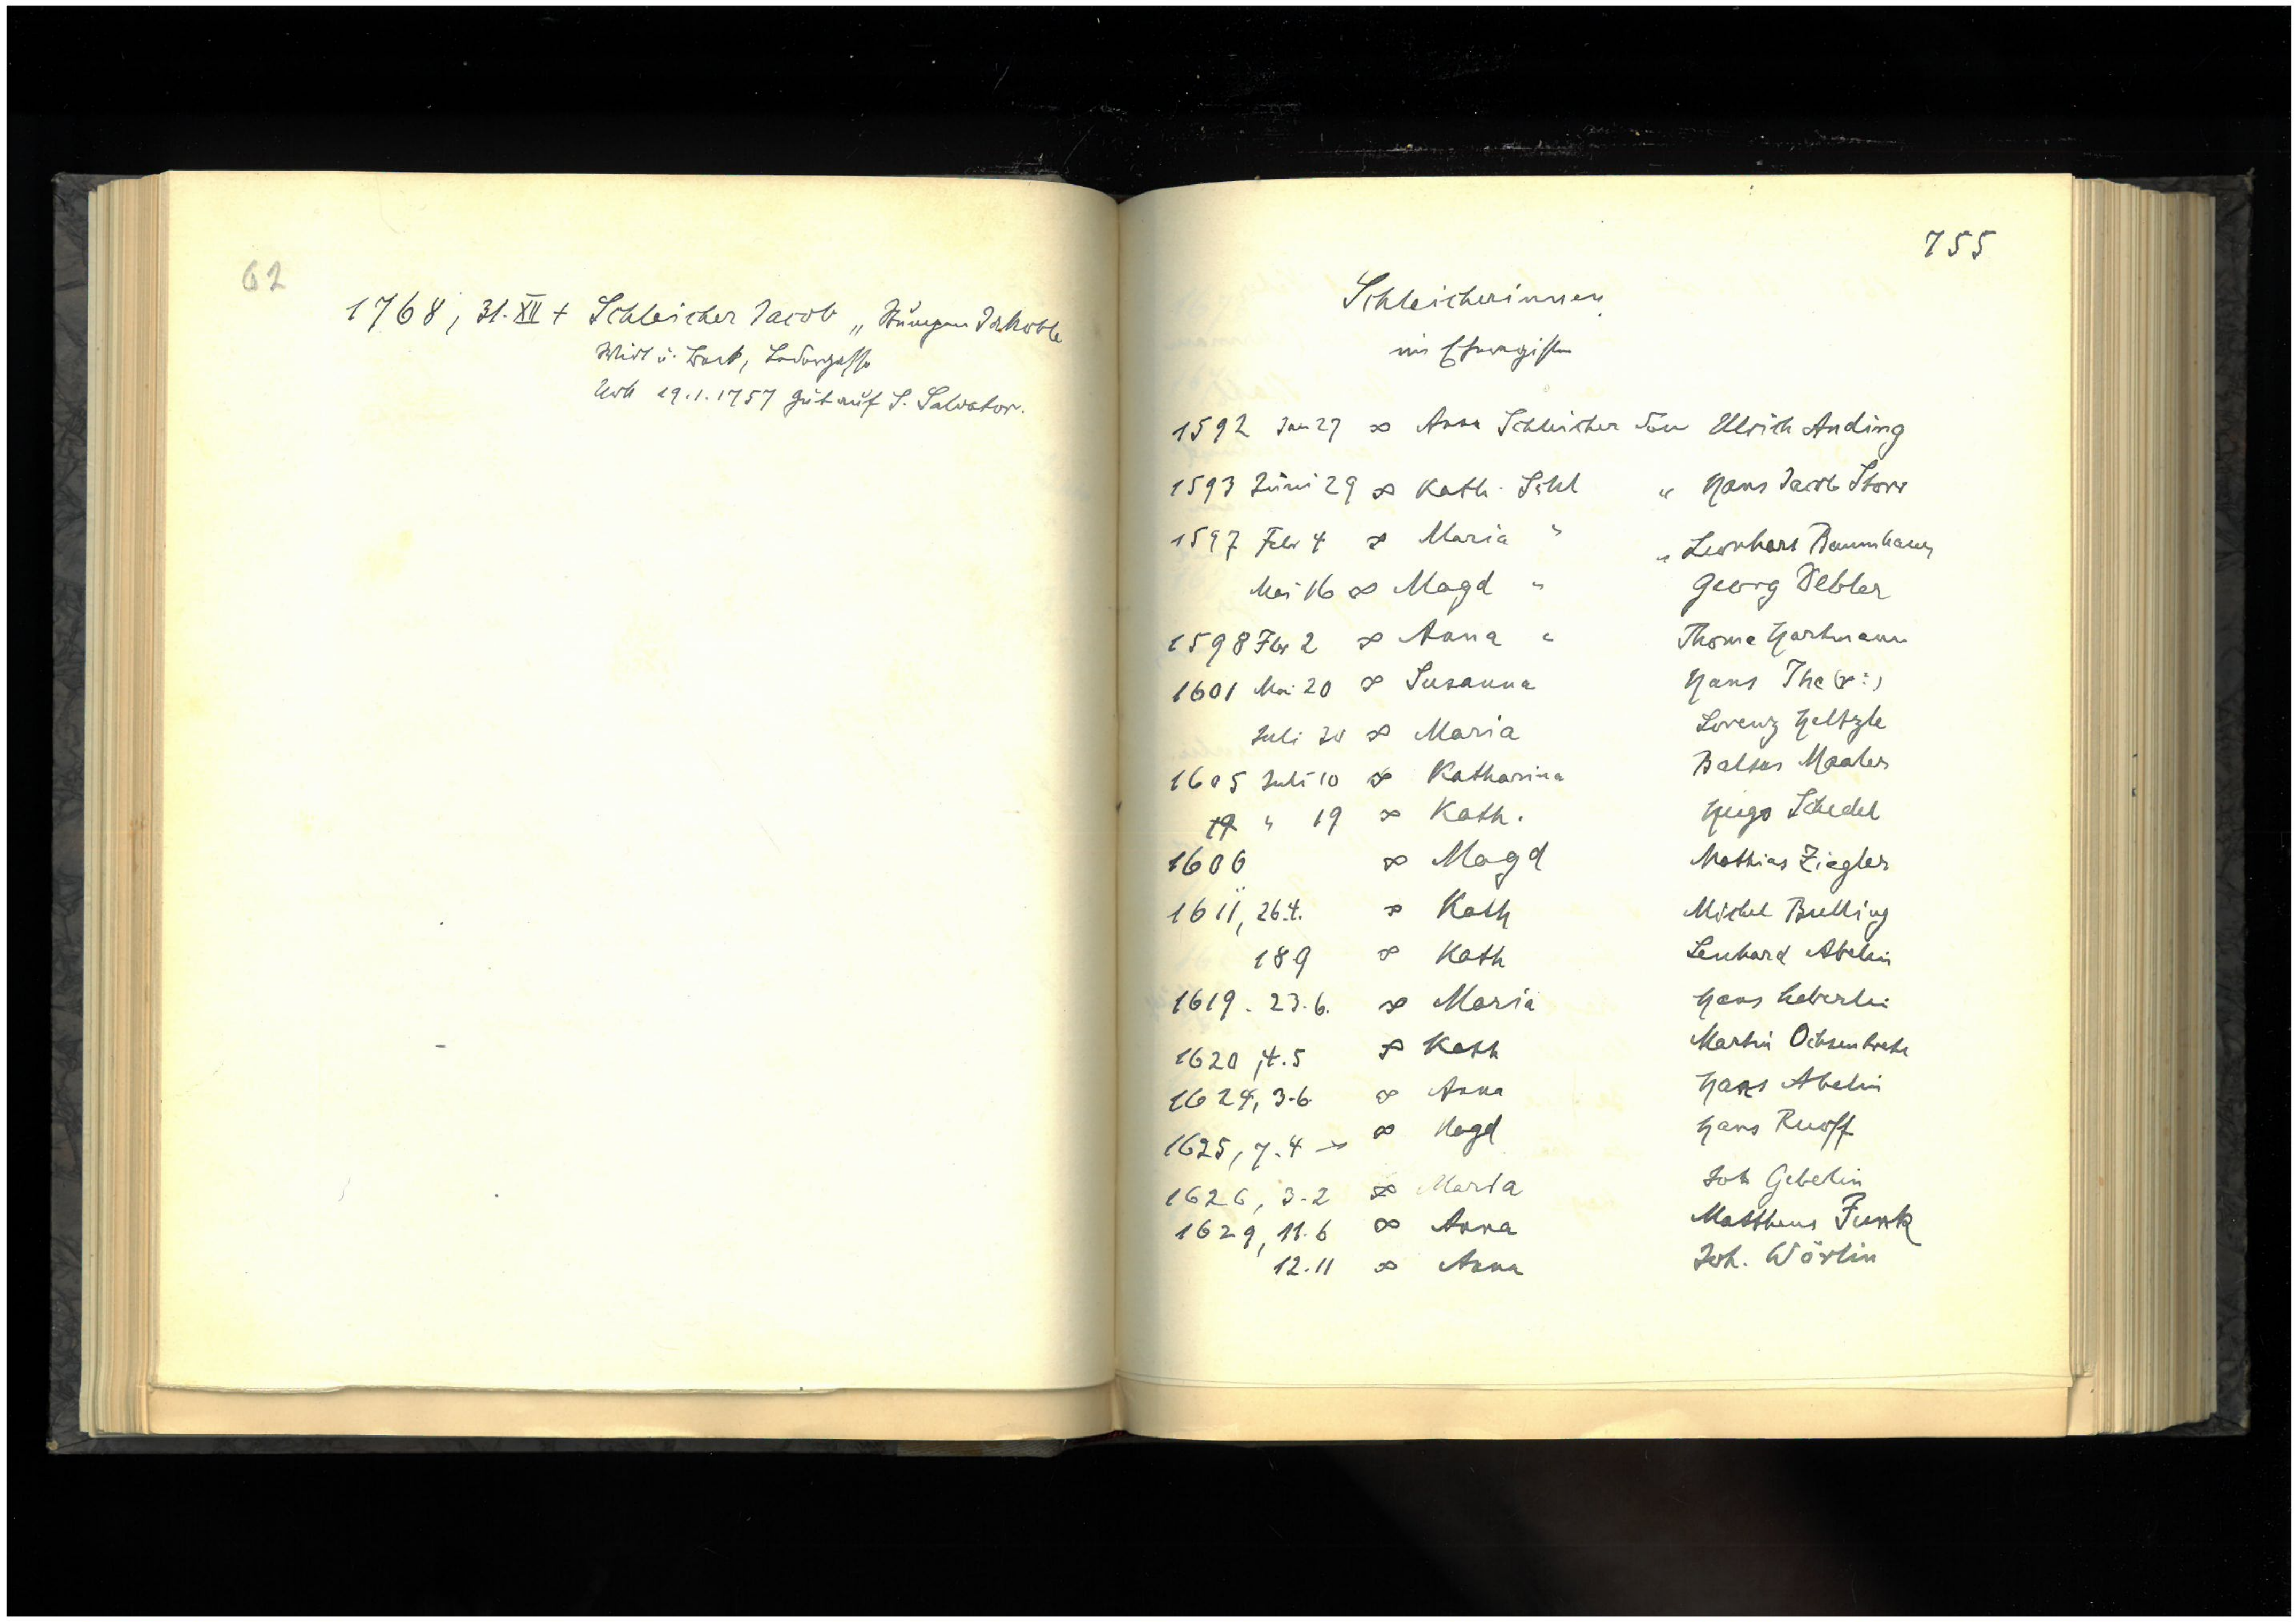 62
1768, 31. XII + Schleicher Jacob „ Jakoble
Wirt u. Beck, Ledergasse
19.1.1757 Gut auf S. Salvator.
755
Schleicherinnen
im Eheregister
1592 Jan 27 ∞ Anna Schleicher den Ulrich Anding
1593 Juni 29 ∞ Kath. Schl „ Hans Jacob Storr
1597 Febr 4 ∞ Maria " „ Leonhard Baumhauer
Mai 16 ∞ Magd " Georg Debler
1598 Febr 2 ∞ Anna " Thoma Hartmann
1601 Mai 20 ∞ Susanna Hans The(r:)
Juli 30 ∞ Maria Lorenz Heltzle
1605 Juli 10 ∞ Katharina Baltas Maaler
19 " 19 ∞ Kath. Hugo Schedel
1606 ∞ Magd Mathias Ziegler
1611, 26.4. ∞ Kath Michel Bulling
18 9 ∞ Kath Lenhard Abelin
1619. 23.6. ∞ Maria Hans Heberlin
1620, 4.5 ∞ Kath Martin
1624, 3.6 ∞ Anna Hans Abelin
1625, 7.4 ∞ Magd Hans Ruoff
1626, 3.2 ∞ Maria Joh Gebelin
1629, 11.6 ∞ Anna Matthaus Funk
12.11 ∞ Anna Joh. Wörlin